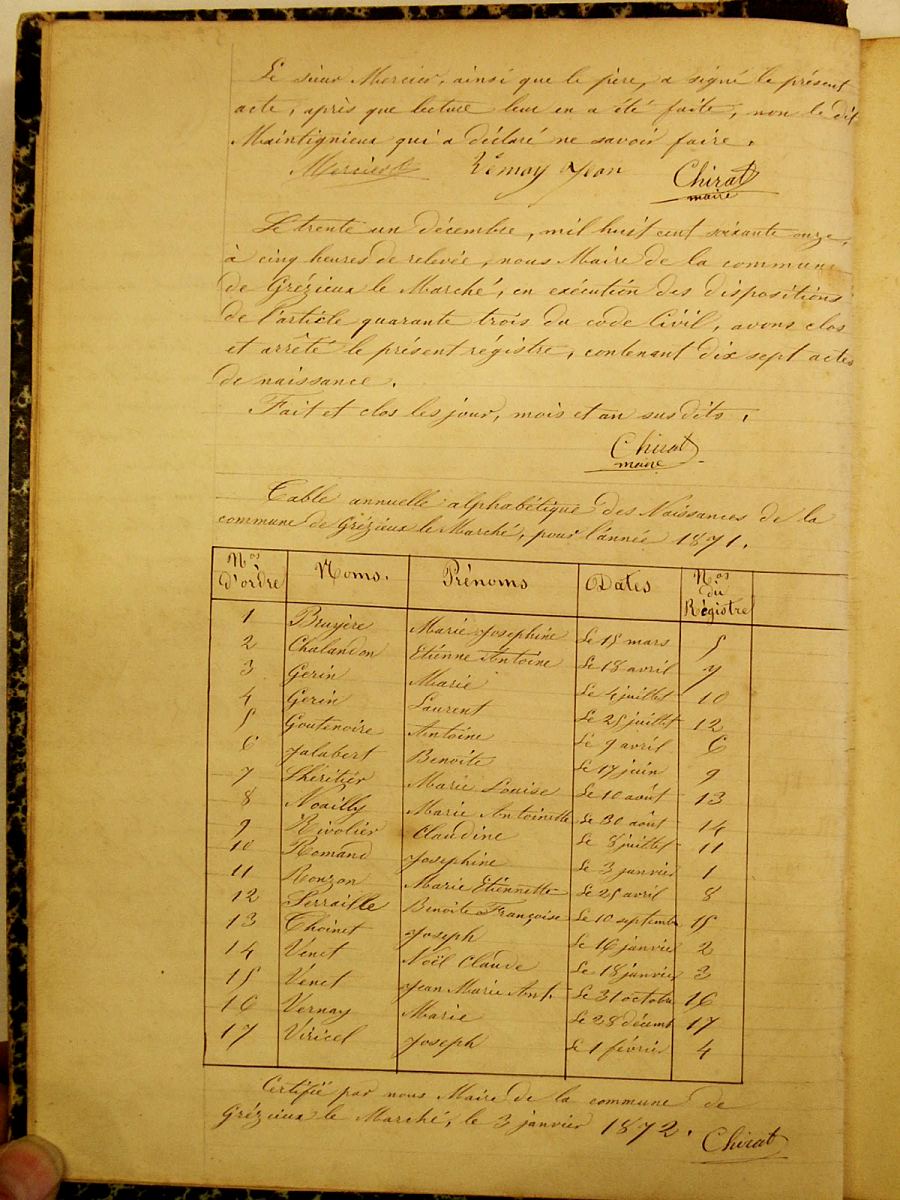 Le sieur Mercier, ainsi que le père, a signé le présent
acte, après que lecture leur en a été faite, non le dit
Maintignieux qui a déclaré ne savoir faire.
Mercier Vernay Jean Chirat
maire
Le trente un décembre, mil huit cent soixante onze,
à cinq heures de relevée, nous Maire de la commune
de Grézieux le Marché, en exécution des dispositions
de l'article quarante trois du code Civil, avons clos
et arrêté le présent régistre, contenant dix sept actes
de naissance.
Fait et clos les jour, mois et an susdits.
Chirat
maire
Table annuelle alphabétique des Naissances de la
commune de Grézieux le Marché, pour l'année 1871.
Nos d'ordre Noms. Prénoms Dates Nos du Régistre
1 Bruyère Marie Josephine Le 15 mars 5
2 Chalandon Etienne Antoine Le 18 avril 7
3 Gerin Marie Le 4 juillet 10
4 Gerin Laurent Le 25 juillet 12
5 Goutenoire Antoine Le 9 avril 6
6 Jalabert Benoite Le 17 juin 9
7 Lhéritier Marie Louise Le 10 août 13
8 Noailly Marie Antoinette Le 30 août 14
9 Rivolier Claudine Le 8 juillet 11
10 Romand Josephine Le 3 janvier 1
11 Ronzon Marie Etiennette Le 25 avril 8
12 Serraille Benoite Françoise Le 10 septembre 15
13 Thoinet Joseph Le 16 janvier 2
14 Venet Noël Claude Le 18 janvier 3
15 Venet Jean Marie Ant. Le 31 octobre 16
16 Vernay Marie Le 28 décemb 17
17 Viricel Joseph Le 1 février 4
Certifié par nous Maire de la commune de
Grézieux le Marché, le 3 janvier 1872.
Chirat